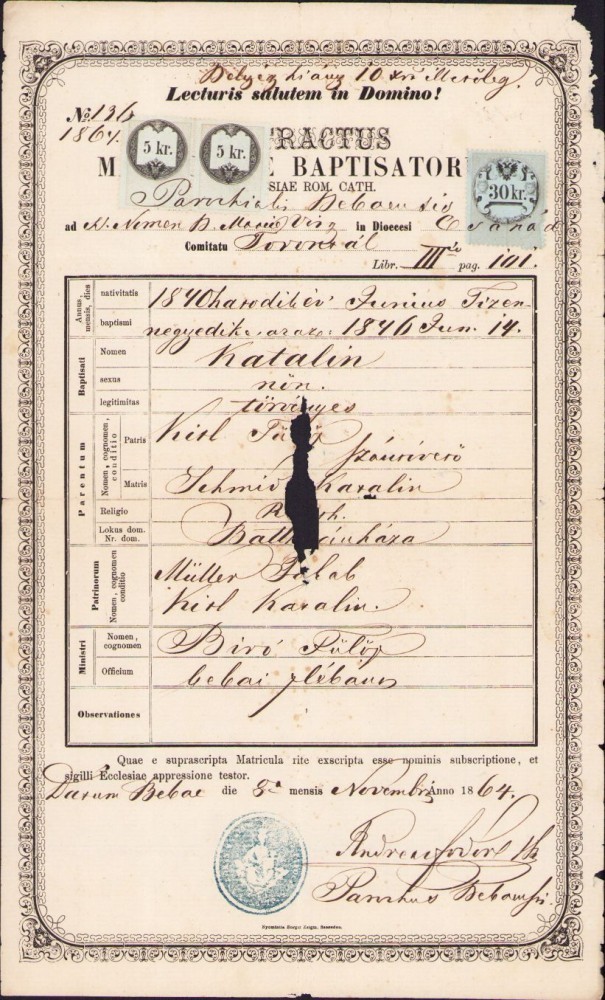 10 Mérőleg.
Lecturis salutem in Domino!
№ 136
1864.
5 kr. 5 kr.
30 kr.
RACTUS
M E BAPTISATOR
SIAE ROM. CATH.
Parochiali Bebaensis
ad Nomen B. Mariae Virg in Dioecesi Csanád
Comitatu Torontál
Libr. III pag. 101.
Annus, mensis, dies
nativitatis 1840 Junius Tizen-
baptismi negyedike azaz 1846 Jun. 14.
Baptisati
Nomen Katalin
sexus nőn.
legitimitas törvényes
Parentum
Nomen, cognomen, conditio
Patris Kisl Fülöp
Matris Schmid Katalin
Religio R th.
Lokus dom. Nr. dom. háza
Patrinorum
Nomen, cognomen conditio
Müller Jakab
Kisl Katalin.
Ministri
Nomen, cognomen Biró Fülöp
Officium bebai plébános
Observationes
Quae e suprascripta Matricula rite exscripta esse nominis subscriptione, et
sigilli Ecclesiae appressione testor.
Datum Bebae die 8a mensis Novembr Anno 1864.
Andreas Fodor
Parochus Bebaensis.